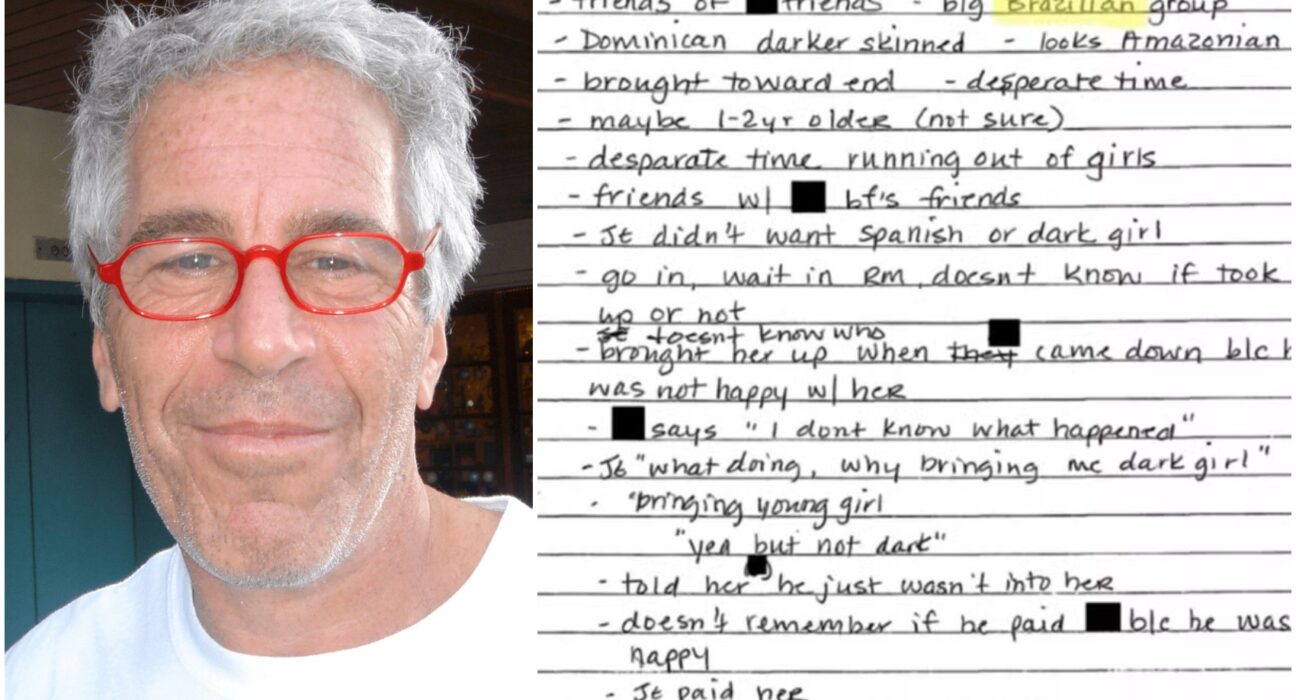 - friends of friends - big Brazilian group
- Dominican darker skinned - looks Amazonian
- brought toward end - desperate time
- maybe 1-2yr older (not sure)
- desparate time running out of girls
- friends w/ bf's friends
- JE didn't want Spanish or dark girl
- go in, wait in RM, doesnt know if took
up or not
doesnt know who
- brought her up when they came down b/c h
was not happy w/ her
- says "I dont know what happened"
- JE "what doing, why bringing me dark girl"
- "bringing young girl
"yea but not dark"
- told her he just wasn't into her
- doesn't remember if he paid b/c he was
happy
- JE paid her